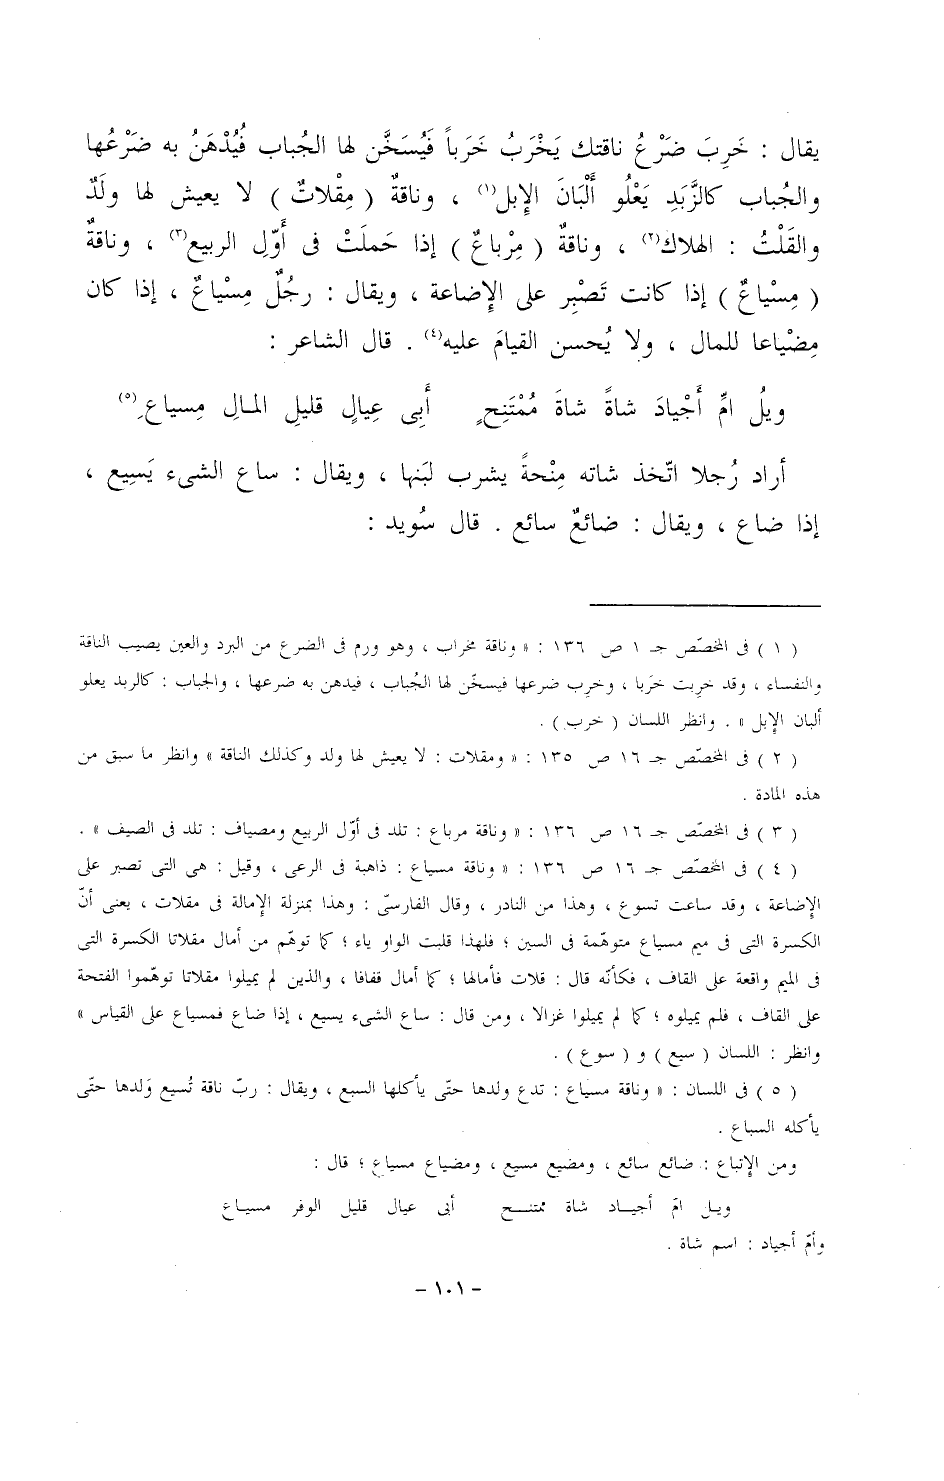 يقال : خَرِبَ ضَرْعُ ناقتك يَخْرَبُ خَرَباً فَيُسَخَّن لها الجُباب فَيُدْهَنُ به ضَرْعُها
والجُباب كالزَّبَدِ يَعْلُو أَلْبَانَ الإِبل(١) ، وناقةٌ ( مِقْلاتٌ ) لا يعيش لها ولَدٌ
والقَلْتُ : الهلاك(٢) ، وناقةٌ ( مِرْباعٌ ) إذا حَملَتْ فى أَوّلِ الربيع(٣) ، وناقةٌ
( مِسْياعٌ ) إذا كانت تَصْبِر على الإِضاعة ، ويقال : رجُلٌ مِسْياعٌ ، إذا كان
مِضْياعا للمال ، ولا يُحسن القيامَ عليه(٤) . قال الشاعر :
ويلُ امِّ أَجْيادَ شاةً شاةَ مُمْتَنِحٍ أَبِى عِيالٍ قليلِ المالِ مِسياعِ(٥)
أراد رُجلا اتّخذ شاته مِنْحةً يشرب لبَنها ، ويقال : ساع الشىء يَسِيع ،
إذا ضاع ، ويقال : ضائعٌ سائع . قال سُويد :
( ١ ) فى المخصّص جـ ١ ص ١٣٦ : « وناقة مخراب ، وهو ورم فى الضرع من البرد والعين يصيب الناقة
والنفساء ، وقد خرِبت خرَبا ، وخرِب ضرعها فيسخّن لها الجُباب ، فيدهن به ضرعها ، والجباب : كالربد يعلو
ألبان الإبل » . وانظر اللسان ( خرب ) .
( ٢ ) فى المخصّص جـ ١٦ ص ١٣٥ : « ومقلات : لا يعيش لها ولد وكذلك الناقة » وانظر ما سبق من
هذه المادة .
( ٣ ) فى المخصّص جـ ١٦ ص ١٣٦ : « وناقة مرباع : تلد فى أوّل الربيع ومصياف : تلد فى الصيف » .
( ٤ ) فى المخصّص جـ ١٦ ص ١٣٦ : « وناقة مسياع : ذاهبة فى الرعى ، وقيل : هى التى تصبر على
الإضاعة ، وقد ساعت تسوع ، وهذا من النادر ، وقال الفارسىّ : وهذا بمنزلة الإمالة فى مقلات ، يعنى أنّ
الكسرة التى فى ميم مسياع متوهّمة فى السين ؛ فلهذا قلبت الواو ياء ؛ كما توهّم من أمال مقلاتا الكسرة التى
فى الميم واقعة على القاف ، فكأنّه قال : قلات فأمالها ؛ كما أمال قفافا ، والذين لم يميلوا مقلاتا توهّموا الفتحة
على القاف ، فلم يميلوه ؛ كما لم يميلوا غزالا ، ومن قال : ساع الشىء يسيع ، إذا ضاع فمسياع على القياس »
وانظر : اللسان ( سيع ) و ( سوع ) .
( ٥ ) فى اللسان : « وناقة مسياع : تدع ولدها حتّى يأكلها السبع ، ويقال : ربّ ناقة تُسيع وَلدها حتّى
يأكله السباع .
ومن الإتباع : ضائع سائع ، ومضيع مسيع ، ومضياع مسياع ؛ قال :
ويـل امّ أجيـــاد شاة ممتنـــح أبى عيال قليل الوفر مسيـاع
وأمّ أجياد : اسم شاة .
- ١٠١ -